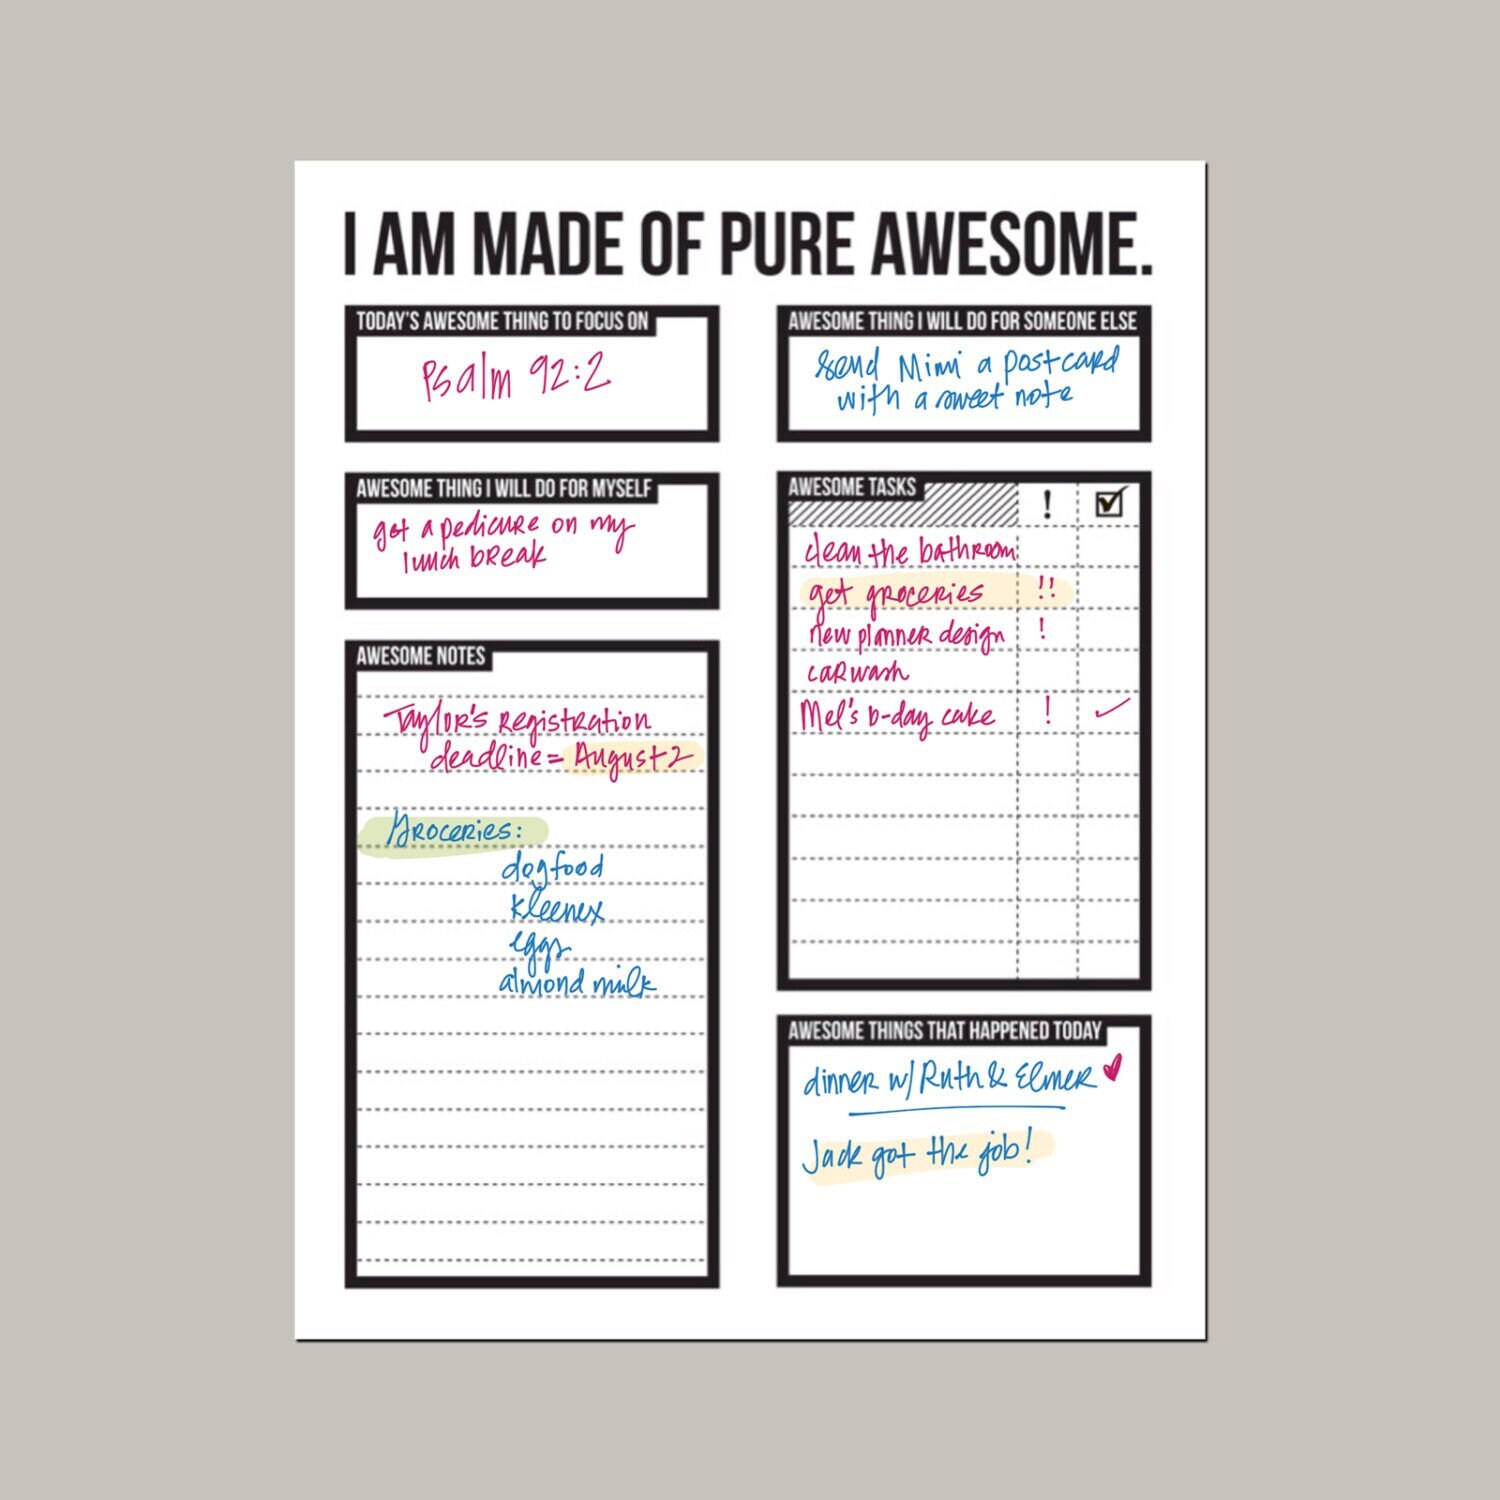 I AM MADE OF PURE AWESOME.
TODAY'S AWESOME THING TO FOCUS ON
Psalm 92:2
AWESOME THING I WILL DO FOR MYSELF
get a pedicure on my
lunch break
AWESOME NOTES
Taylor's registration
deadline = August 2
Groceries:
dog food
kleenex
eggs
almond milk
AWESOME THING I WILL DO FOR SOMEONE ELSE
send Mimi a postcard
with a sweet note
AWESOME TASKS ! ☑
clean the bathroom
get groceries !!
new planner design !
car wash
Mel's b-day cake ! ✓
AWESOME THINGS THAT HAPPENED TODAY
dinner w/ Ruth & Elmer ♥
Jack got the job!